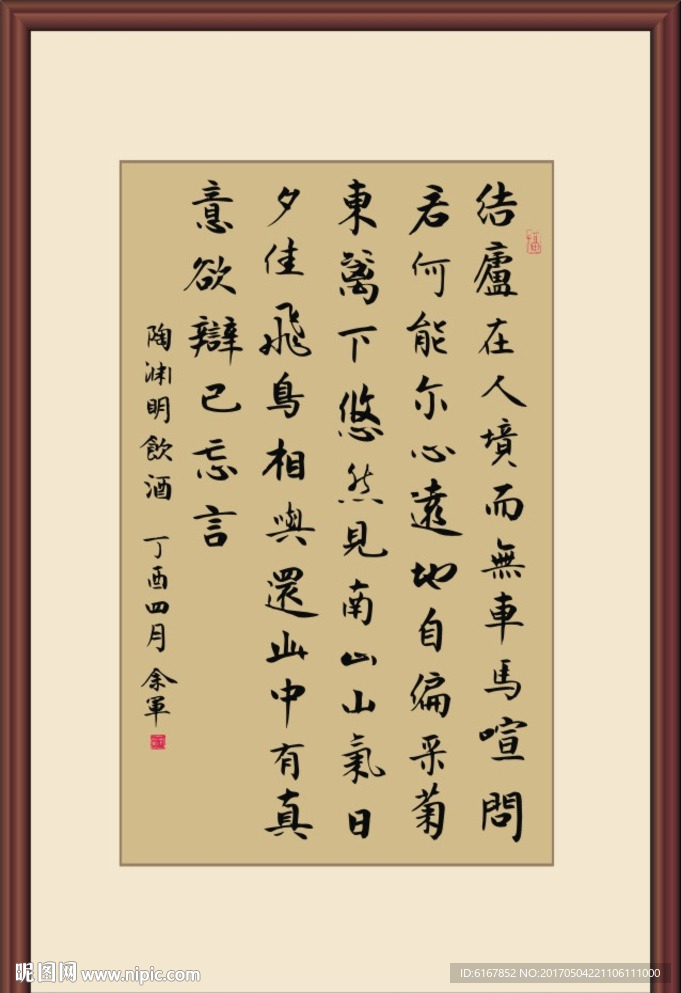 结廬在人境而無車馬喧問
君何能尔心遠地自偏采菊
東篱下悠然見南山山氣日
夕佳飛鳥相與還此中有真
意欲辯已忘言
陶渊明飲酒 丁酉四月 余軍
昵图网 www.nipic.com
ID:6167852 NO:20170504221106111000